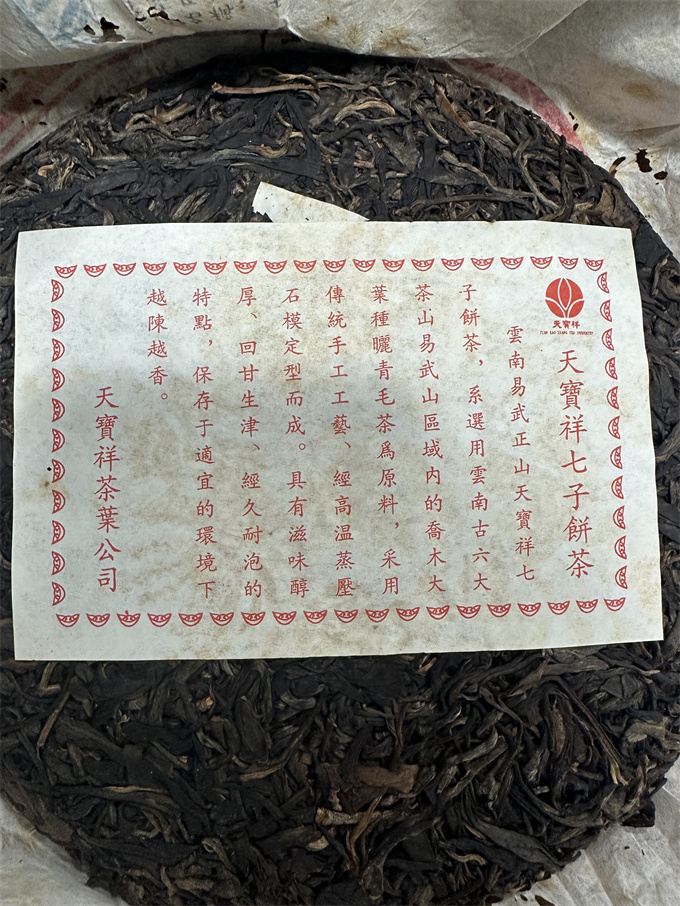 天寶祥
天寶祥七子餅茶
雲南易武正山天寶祥七
子餅茶，系選用雲南古六大
茶山易武山區域内的喬木大
葉種曬青毛茶爲原料，采用
傳統手工工藝、經高温蒸壓
石模定型而成。具有滋味醇
厚、回甘生津、經久耐泡的
特點，保存于適宜的環境下
越陳越香。
天寶祥茶葉公司